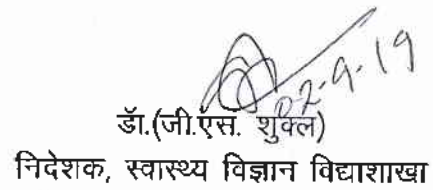 02-9-19
डॉ.(जी.एस. शुक्ल)
निदेशक, स्वास्थ्य विज्ञान विद्याशाखा